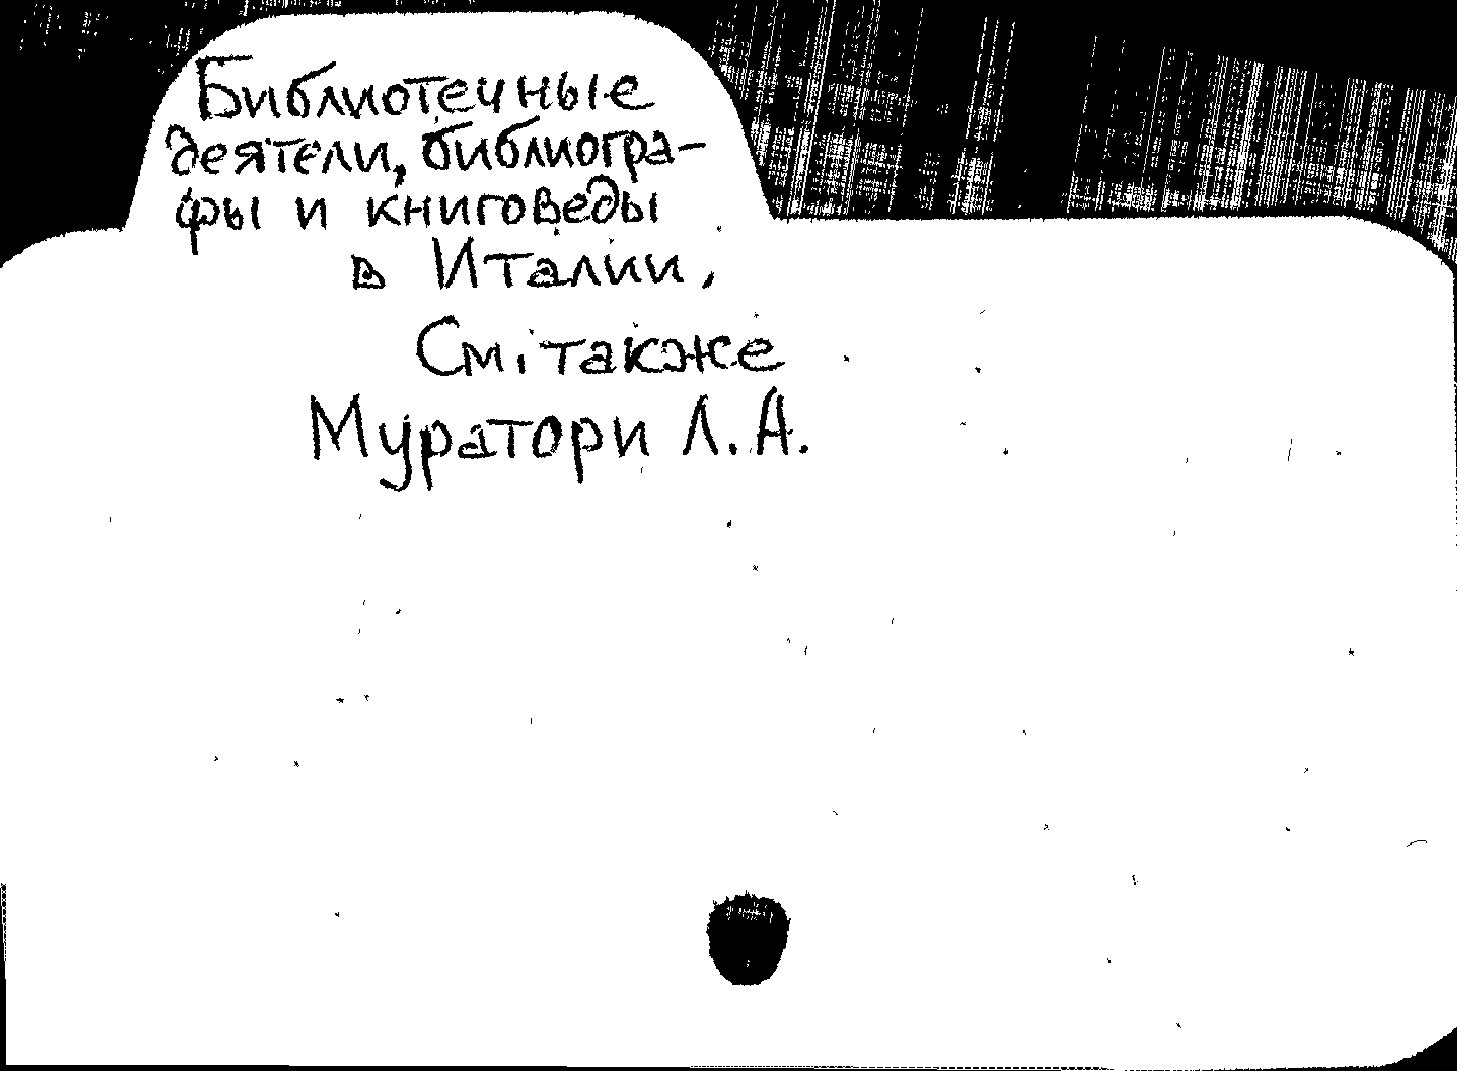 Библиотечные
деятели, библиогра-
фы и книговеды
в Италии,
См. также
Муратори Л.А.